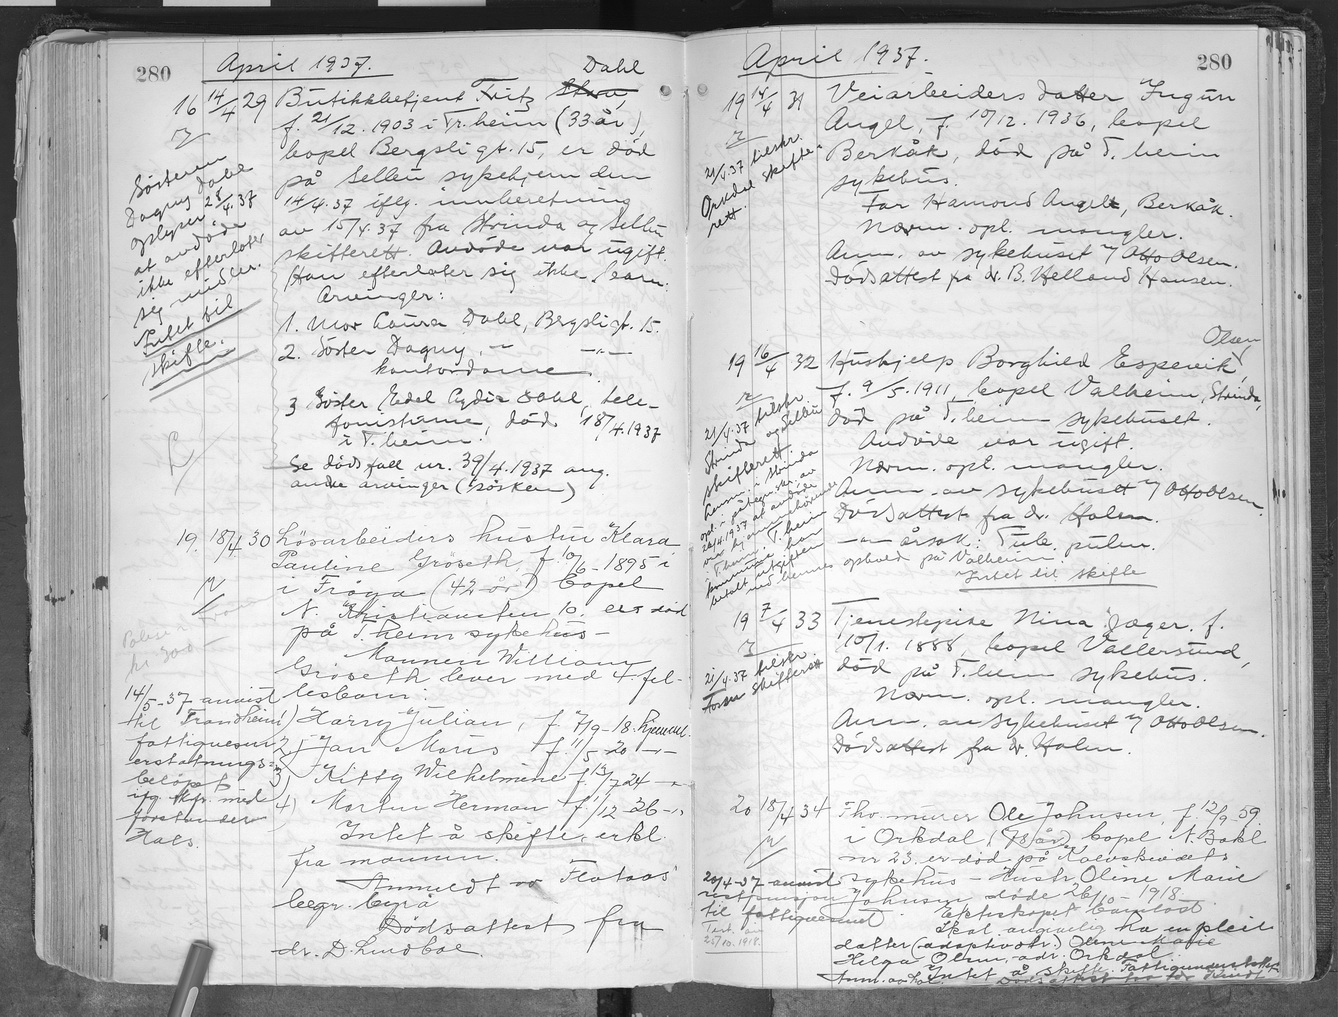 280
April 1937.
Dahl
16 14/4 29 Butikkbetjent Fritz
f. 21/12. 1903 i Tr.heim (33 år),
bopel Bergsligt. 15, er død
på Selbu sykehjem den
14/4.37 iflg. innberetning
av 15/4.37 fra Strinda og Selbu
skifterett. Avdøde var ugift.
Han efterlater sig ikke barn.
Arvinger:
1. Mor Laura Dahl, Bergsligt. 15.
2. Søster Dagny, -"- -"-
kontordame
3 Søster Edel Lydia Dahl, tele-
fonistinne, død 18/4.1937
i T.heim.
Se dødsfall nr. 39/4.1937 ang.
andre arvinger (søsken)
Søsteren
Dagny Dahl
oplyser 28/4.37
at avdøde
ikke efterlater
sig midler.
Intet til
skifte.
19. 18/4 30 Løsarbeiders hustru Klara
Pauline Grøseth, f. 10/6-1895 i
i Frøya (42 år) bopel
N. Kristiansten 10. er død
på T.heim sykehus -
Mannen William
Grøseth lever med 4 fel-
lesbarn:
1) Harry Julian, f. 7/9-18. hjemme.
2) Jan Moris f. 11/5-20 -"-
3) Kitty Wilhelmine f. 13/7 24 -"-
4) Morten Herman f. 1/12-26 -"-
Intet å skifte, erkl.
fra mannen.
Anmeldt av Flataas
begr. byrå
Dødsattest fra
dr. D. Lundboe.
14/5-37 anvist
til Trondheim
fattigvesen
erstatnings-
beløpet
iflg. skfr. med
forstander
Hals.
April 1937.
280
19 14/4 31 Veiarbeiders datter Ingun
Angel, f. 10/12. 1936, bopel
Berkåk, død på T.heim
sykehus.
Far Hamond Angel, Berkåk.
Nærm. opl. mangler.
Anm. av sykehuset v/ Otto Olsen.
Dødsattest fra dr. B. Helland Hansen.
21/4.37 tilskr.
Orkdal skifte-
rett.
Olsen
19 16/4 32 Hushjelp Borghild Espervik
f. 9/5.1911, bopel Valheim, Strinda,
død på T.heim sykehuset.
Avdøde var ugift.
Nærm. opl. mangler.
Anm. av sykehuset v/ Otto Olsen.
Dødsattest fra dr. Holm.
-"- årsak: Tub. pulm.
ophold på Valheim.
Intet til skifte
21/4.37 tilskr.
Strinda og Selbu
skifterett.
19 7/4 33 Tjenestepike Nina Jæger, f.
10/1. 1888, bopel Vallersund,
død på T.heim sykehus.
Nærm. opl. mangler.
Anm. av sykehuset v/ Otto Olsen.
Dødsattest fra dr. Holm.
21/4.37 tilskr.
Fosen skifterett
20 18/4 34 Fhv. murer Ole Johnsen, f. 12/9-59.
i Orkdal (78 år) bopel N. Bakl.
nr 23. er død på Kalvskindets
sykehus - Hustr. Oline Marie
Johnsen døde 26/10-1918.
Ekteskapet barnløst
Skal angivelig ha en pleie
datter (adoptivdtr.) Oline Marie
Helga Olsen, adr. Orkdal.
Intet å skifte.
20/4-37 anvist
til fattigvesenet.
25/10.1918.